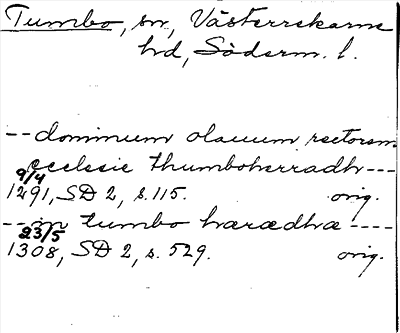 Tumbo, sn, Västerrekarne
hd, Söderm. l.
-- dominum olauum rectorem
ecclesie thumbohærradh ---
9/4
1291, SD 2, s. 115. orig.
-- in tumbo hæræadhæ ----
23/5
1308, SD 2, s. 529. orig.